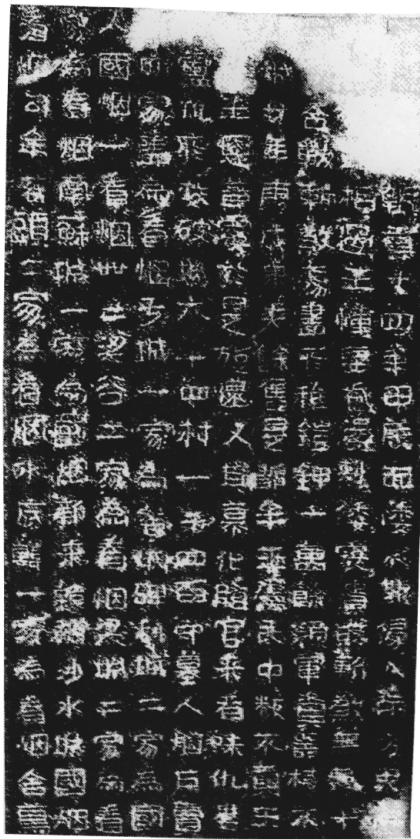 十四年甲辰而倭不軌侵入帶方界
相遇王幢要截盪刺倭寇潰敗斬煞無數
合戰斬煞蕩盡所獲鎧鉀一萬餘領軍資器械不
城廿年庚戌東夫餘舊是鄒牟王屬民中叛不貢王
王恩普覆於是旋還又其慕化隨官來者味仇婁
盧凡所攻破城六十四村一千四百守墓人烟戶賣
四家盡為看烟于城一家為看烟碑利城二家為國
國烟一看烟卌三梁谷二家為看烟梁城二家為看
為看烟南蘇城一家為國烟新來韓穢沙水城國烟
看烟勾牟客頭二家為看烟求底韓一家為看烟舍蔦